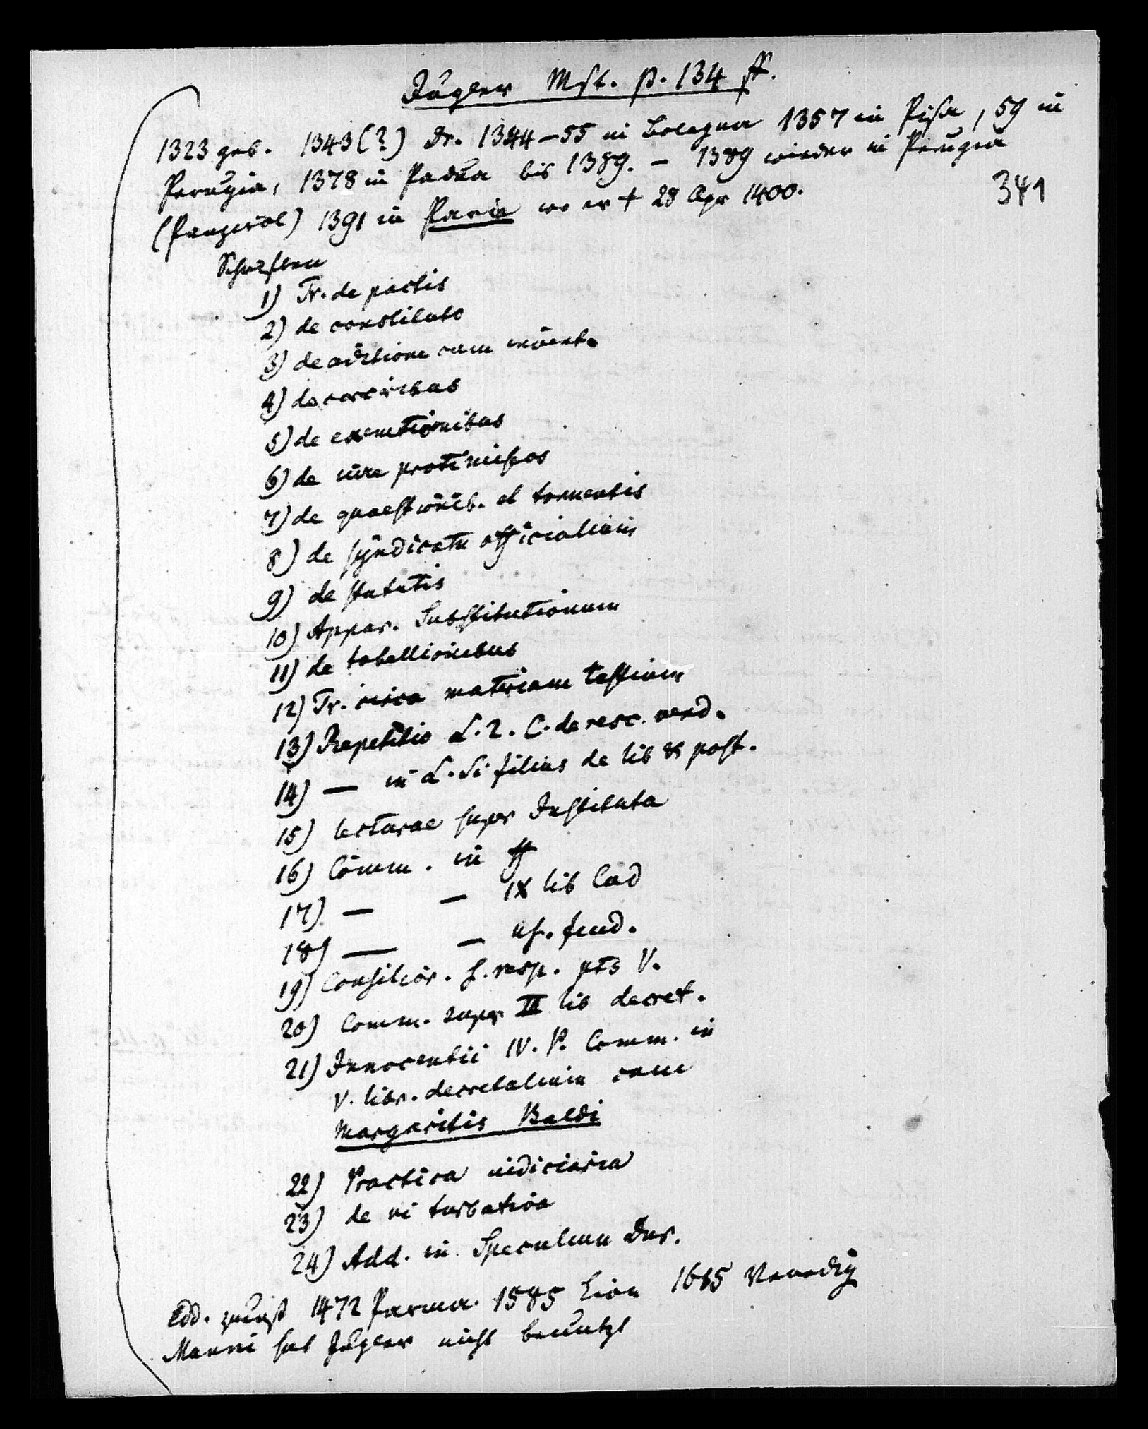 Jugler Mst. p. 134 ff.
1323 geb. 1343(?) Dr. 1344–55 in Bologna 1357 in Pisa, 59 in
Perugia, 1378 in Padua bis 1389. – 1389 wieder in Perugia
341
(Panzirol) 1391 in Pavia wo er † 28 Apr 1400.
Schriften
1) Tr. de pactis
2) de constituto
3) de aditione cum invent.
4) de
5) de exemtionibus
6) de iure protimiseos
7) de quaestionib. et tormentis
8) de syndicatu officialium
9) de statutis
10) Appar. Substitutionum
11) de tabellionibus
12) Tr. circa materiam testium
13) Repetitio L. 2. C. de resc. vend.
14) — in L. Si filius de lib & post.
15) lecturae super Instituta
16) Comm. in ff
17) — – IX lib Cod
18) — – us. feud.
19) Consilior. s. resp. pts V.
20) Comm. super II lib decret.
21) Innocentii IV. P. Comm. in
V. libr. decretalium cum
Margaritis Baldi
22) Practica iudiciaria
23) de vi turbativa
24) Add. in Speculum Dur.
Edd. zuerst 1472 Parma. 1585 Lion 1615 Venedig
Manni hat Jugler nicht benutzt